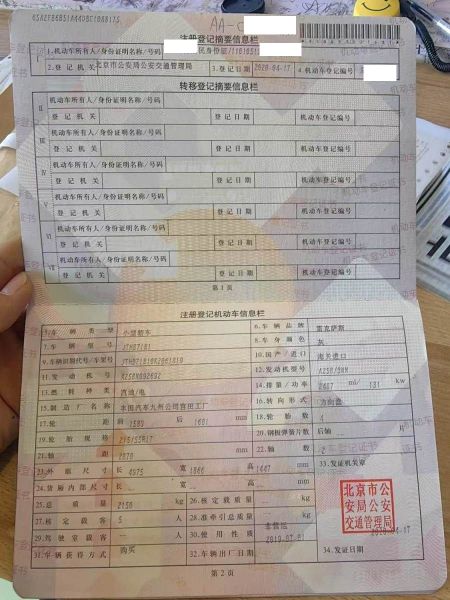 AA-
注册登记摘要信息栏
I 1.机动车所有人/身份证明名称/号码
2.登记机关 北京市公安局公安交通管理局 3.登记日期 2020-04-17 4.机动车登记编号
转移登记摘要信息栏
II 机动车所有人/身份证明名称/号码
登记机关 登记日期 机动车登记编号
III 机动车所有人/身份证明名称/号码
登记机关 登记日期 机动车登记编号
IV 机动车所有人/身份证明名称/号码
登记机关 登记日期 机动车登记编号
V 机动车所有人/身份证明名称/号码
登记机关 登记日期 机动车登记编号
VI 机动车所有人/身份证明名称/号码
登记机关 登记日期 机动车登记编号
VII 机动车所有人/身份证明名称/号码
登记机关 登记日期 机动车登记编号
第1页
注册登记机动车信息栏
5.车辆类型 小型轿车 6.车辆品牌 雷克萨斯
7.车辆型号 8.车身颜色 灰
9.车辆识别代号/车架号 10.国产/进口 海关进口
11.发动机号 12.发动机型号
13.燃料种类 汽油/电 14.排量/功率 ml/ 131 kw
15.制造厂名称 丰田汽车九州公司宫田工厂 16.转向形式 方向盘
17.轮距 前 后 1601 mm 18.轮胎数 4
19.轮胎规格 215/55R17 20.钢板弹簧片数 后轴 片
21.轴距 2870 mm 22.轴数 2
23.外廓尺寸 长 4975 宽 1866 高 1447 mm 33.发证机关章
24.货厢内部尺寸 长 宽 高 mm
25.总质量 2150 kg 26.核定载质量 kg
27.核定载客 5 人 28.准牵引总质量 kg
29.驾驶室载客 人 30.使用性质 非营运
31.车辆获得方式 购买 32.车辆出厂日期 34.发证日期
北京市公
安局公安
交通管理局
第2页